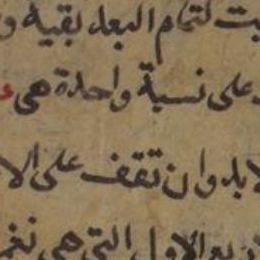 لتمام البعد بقية و
على نسبة واحدة هى
لابد وان تقف على الا
الاول التى هى نغم